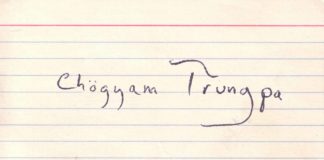 Chögyam Trungpa